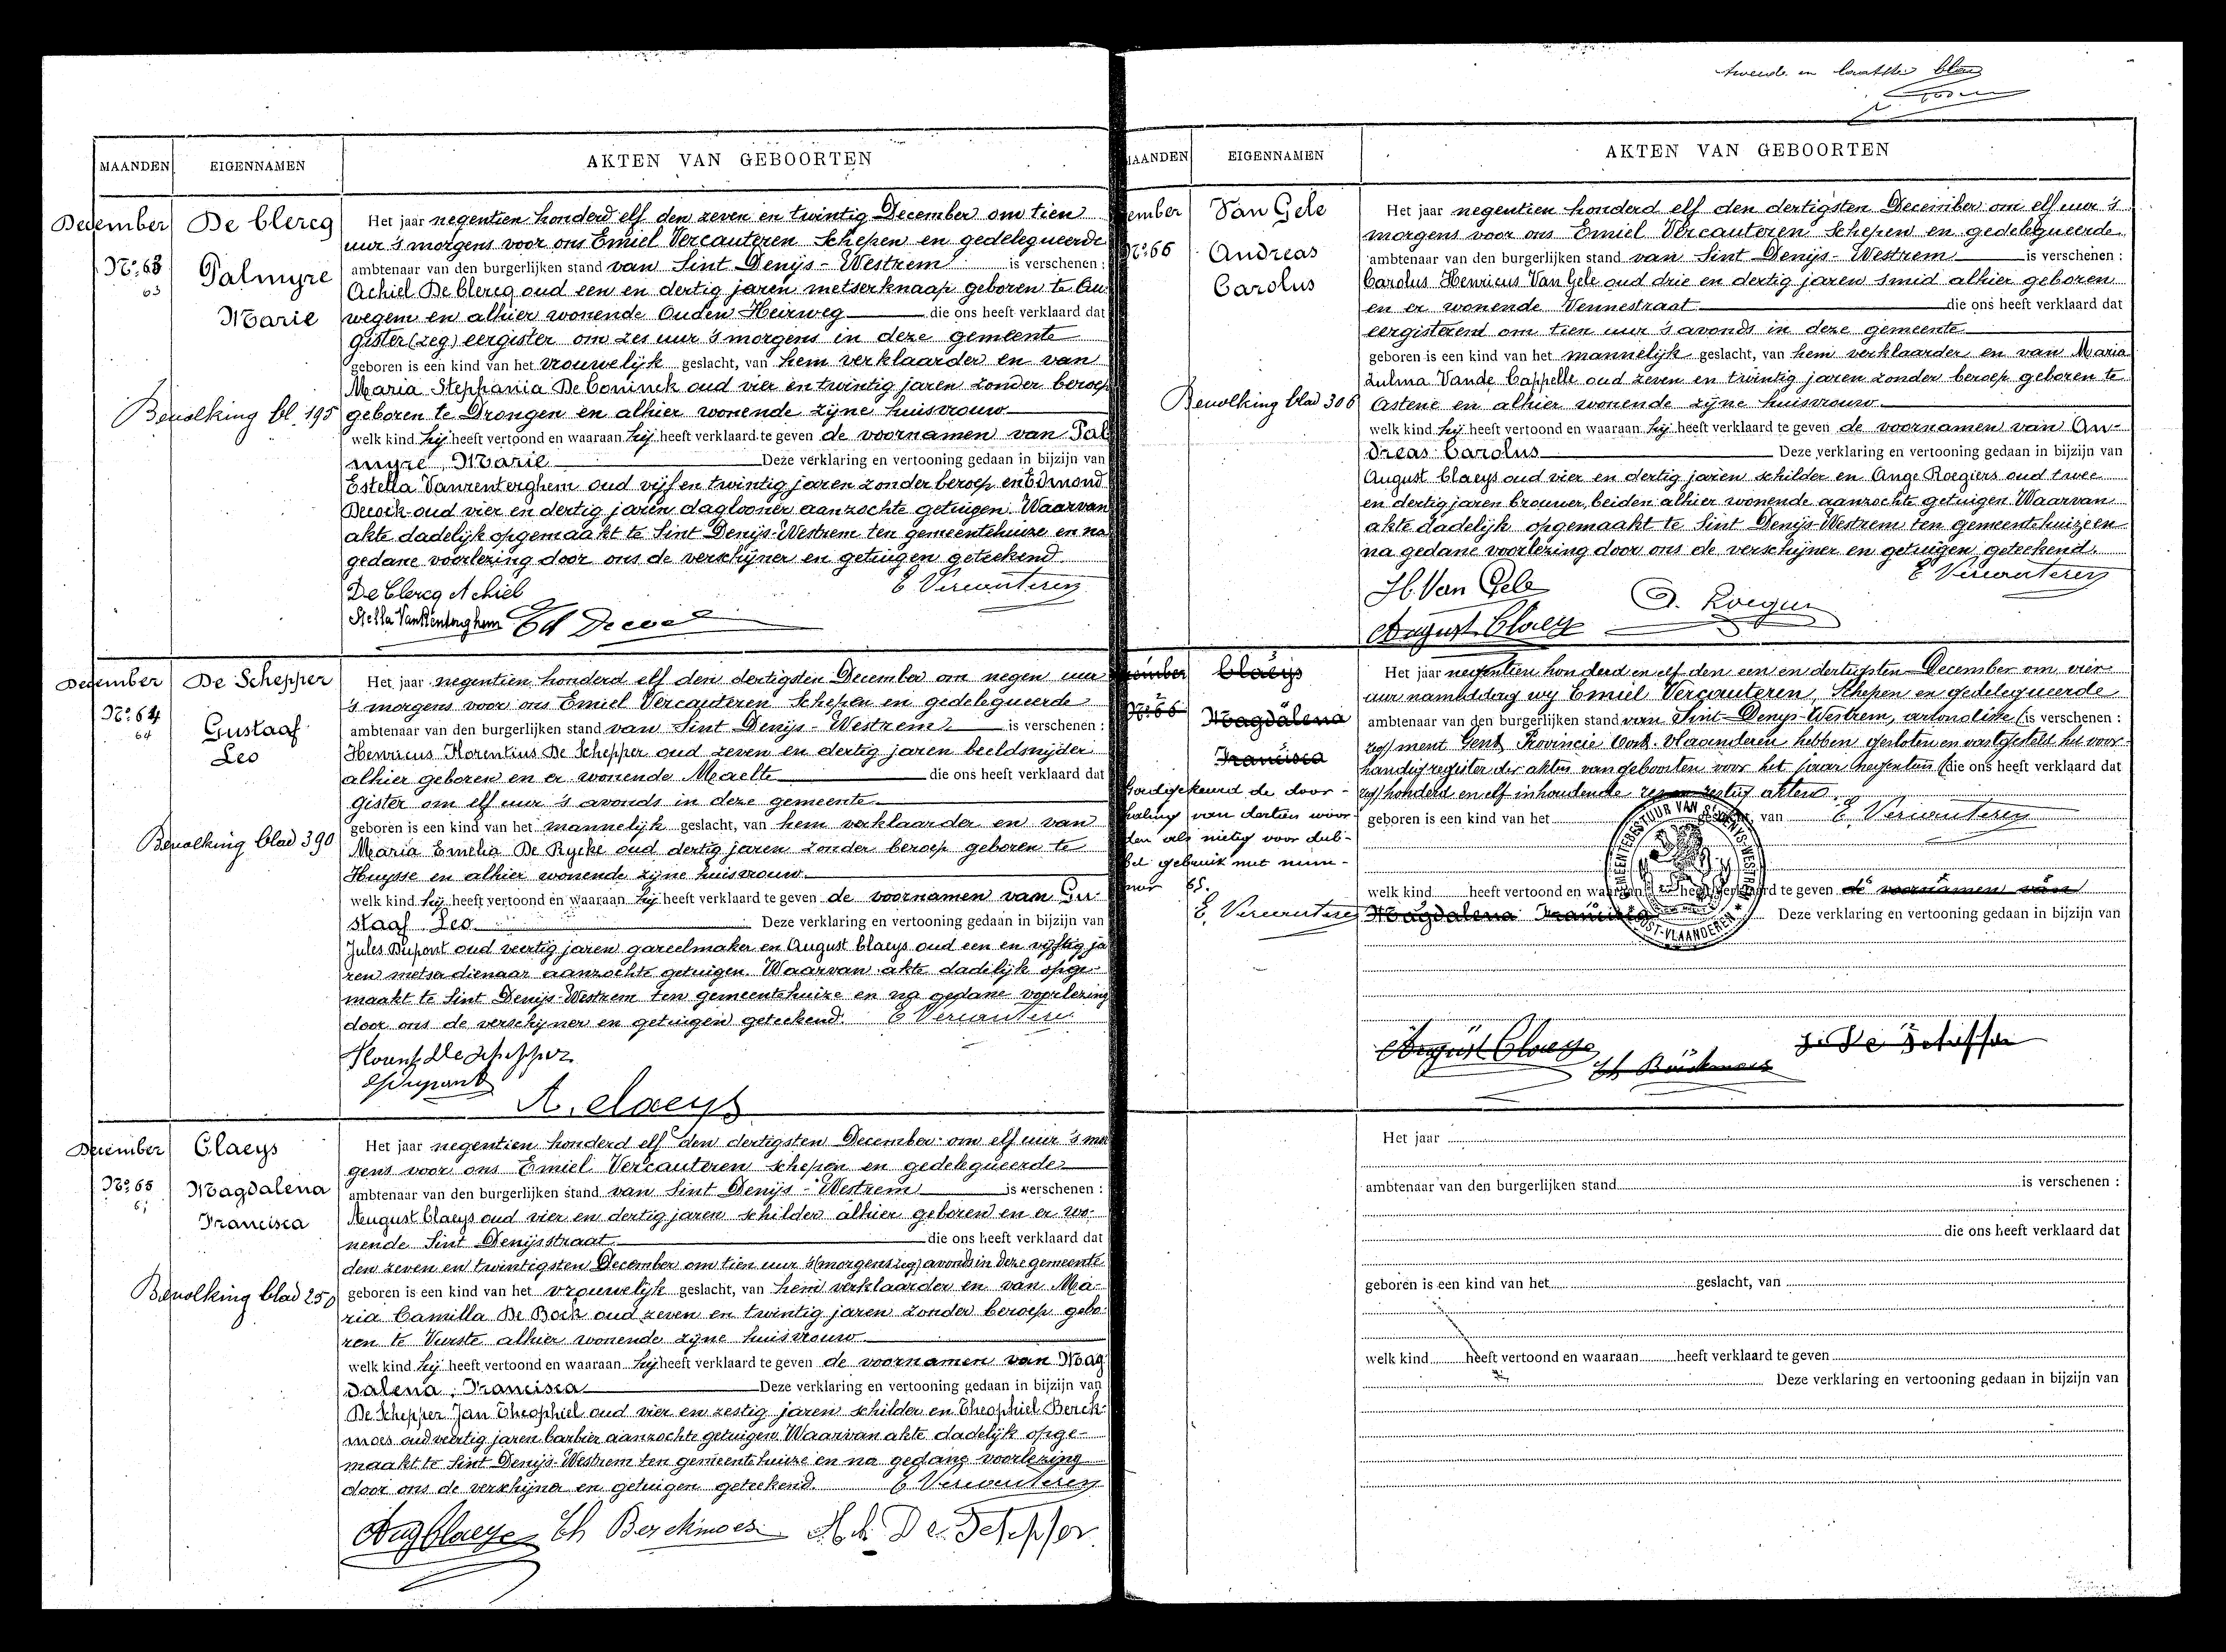 MAANDEN
EIGENNAMEN
AKTEN VAN GEBOORTEN
December
De Clercq
No. 63
63
Palmyre
Marie
Bevolking bl. 195
Het jaar negentien honderd elf den zeven en twintig December om tien
uur 's morgens voor ons Emiel Vercauteren Schepen en gedelegueerde
ambtenaar van den burgerlijken stand van Sint Denijs-Westrem is verschenen :
Achiel De Clercq oud een en dertig jaren metserknaap geboren te
wegem en alhier wonende Ouden Heirweg die ons heeft verklaard dat
gister (zeg) eergister om zes uur 's morgens in deze gemeente
geboren is een kind van het vrouwelijk geslacht, van hem verklaarder en van
Maria Stephania De Coninck oud vier en twintig jaren zonder beroep
geboren te Drongen en alhier wonende zijne huisvrouw
welk kind hij heeft vertoond en waaraan hij heeft verklaard te geven de voornamen van Pal
myre, Marie Deze verklaring en vertooning gedaan in bijzijn van
Estella Vanrenterghem oud vijf en twintig jaren zonder beroep en Edmond
oud vier en dertig jaren daglooner aanzochte getuigen. Waarvan
akte dadelijk opgemaakt te Sint Denijs-Westrem ten gemeentehuize en na
gedane voorlezing door ons de verschijner en getuigen geteekend.
De Clercq Achiel
E Vercauteren
Stella VanRenterghem
December
De Schepper
No. 64
64
Gustaaf
Leo
Bevolking blad 390
Het jaar negentien honderd elf den dertigsten December om negen uur
's morgens voor ons Emiel Vercauteren Schepen en gedelegueerde
ambtenaar van den burgerlijken stand van Sint Denijs-Westrem is verschenen :
Henricus Florentius De Schepper oud zeven en dertig jaren beeldsnijder
alhier geboren en er wonende Maelte die ons heeft verklaard dat
gister om elf uur 's avonds in deze gemeente
geboren is een kind van het mannelijk geslacht, van hem verklaarder en van
Maria Emelia De Rycke oud dertig jaren zonder beroep geboren te
Huysse en alhier wonende zijne huisvrouw
welk kind hij heeft vertoond en waaraan hij heeft verklaard te geven de voornamen van Gu-
staaf Leo Deze verklaring en vertooning gedaan in bijzijn van
Jules Dupont oud veertig jaren gareelmaker en August Claeys oud een en vijftig ja
ren metser dienaar aanzochte getuigen. Waarvan akte dadelijk opge-
maakt te Sint Denijs-Westrem ten gemeentehuize en na gedane voorlezing
door ons de verschijner en getuigen geteekend. E Vercauteren
Florent De Schepper
A. Claeys
December
Claeys
No. 65
Magdalena
Francisca
Bevolking blad 250
Het jaar negentien honderd elf den dertigsten December om elf uur 's mor
gens voor ons Emiel Vercauteren schepen en gedelegueerde
ambtenaar van den burgerlijken stand van Sint Denijs-Westrem is verschenen :
August Claeys oud vier en dertig jaren schilder alhier geboren en er wo-
nende Sint Denijsstraat die ons heeft verklaard dat
den zeven en twintigsten December om tien uur 's (morgens zeg) avonds in deze gemeente
geboren is een kind van het vrouwelijk geslacht, van hem verklaarder en van Ma-
ria Camilla De Bock oud zeven en twintig jaren zonder beroep gebo-
ren te Vurste alhier wonende zijne huisvrouw
welk kind hij heeft vertoond en waaraan hij heeft verklaard te geven de voornamen van Mag
dalena, Francisca Deze verklaring en vertooning gedaan in bijzijn van
De Schepper Jan Theophiel oud vier en zestig jaren schilder en Theophiel Berck-
moes oud veertig jaren barbier aanzochte getuigen. Waarvan akte dadelijk opge-
maakt te Sint Denijs-Westrem ten gemeentehuize en na gedane voorlezing
door ons de verschijner en getuigen geteekend. E Vercauteren
Aug Claeys Th Berckmoes De Schepper
tweede en laatste blad
MAANDEN
EIGENNAMEN
AKTEN VAN GEBOORTEN
ember
Van Gele
No. 66
Andreas
Carolus
Bevolking blad 306
Het jaar negentien honderd elf den dertigsten December om elf uur 's
morgens voor ons Emiel Vercauteren Schepen en gedelegueerde
ambtenaar van den burgerlijken stand van Sint Denijs-Westrem is verschenen :
Carolus Henricus Van Gele oud drie en dertig jaren smid alhier geboren
en er wonende Vennestraat die ons heeft verklaard dat
eergisterend om tien uur 's avonds in deze gemeente
geboren is een kind van het mannelijk geslacht, van hem verklaarder en van Maria
Zulma Vande Cappelle oud zeven en twintig jaren zonder beroep geboren te
Astene en alhier wonende zijne huisvrouw
welk kind hij heeft vertoond en waaraan hij heeft verklaard te geven de voornamen van An-
dreas Carolus Deze verklaring en vertooning gedaan in bijzijn van
August Claeys oud vier en dertig jaren schilder en Ange Roegiers oud twee
en dertig jaren brouwer, beiden alhier wonende aanzochte getuigen. Waarvan
akte dadelijk opgemaakt te Sint Denijs-Westrem ten gemeentehuize en
na gedane voorlezing door ons de verschijner en getuigen geteekend.
E Vercauteren
H. Van Gele
August Claeys
ember
Claeys
No. 66
Magdalena
Francisca
Goedgekeurd de door-
haling van dertien woor
den als nietig voor dub-
bel gebruik met num-
mer 65.
E. Vercauteren
Het jaar negentien honderd en elf den een en dertigsten December om vier
uur namiddag wij Emiel Vercauteren, Schepen en gedelegueerde
ambtenaar van den burgerlijken stand van Sint-Denys-Westrem, is verschenen :
zeg) ment Gent Provincie Oost-Vlaanderen hebben gesloten en vastgesteld het voor-
handig register der akten van geboorten voor het jaar negentien (die ons heeft verklaard dat
zeg) honderd en elf inhoudende zes en zestig akten
geboren is een kind van het geslacht, van E. Vercauteren
welk kind heeft vertoond en waaraan heeft verklaard te geven de voornamen van
Magdalena Francisca Deze verklaring en vertooning gedaan in bijzijn van
GEMEENTEBESTUUR VAN St DENYS-WESTREM
OOST-VLAANDEREN
August Claeys
Het jaar
ambtenaar van den burgerlijken stand is verschenen :
die ons heeft verklaard dat
geboren is een kind van het geslacht, van
welk kind heeft vertoond en waaraan heeft verklaard te geven
Deze verklaring en vertooning gedaan in bijzijn van